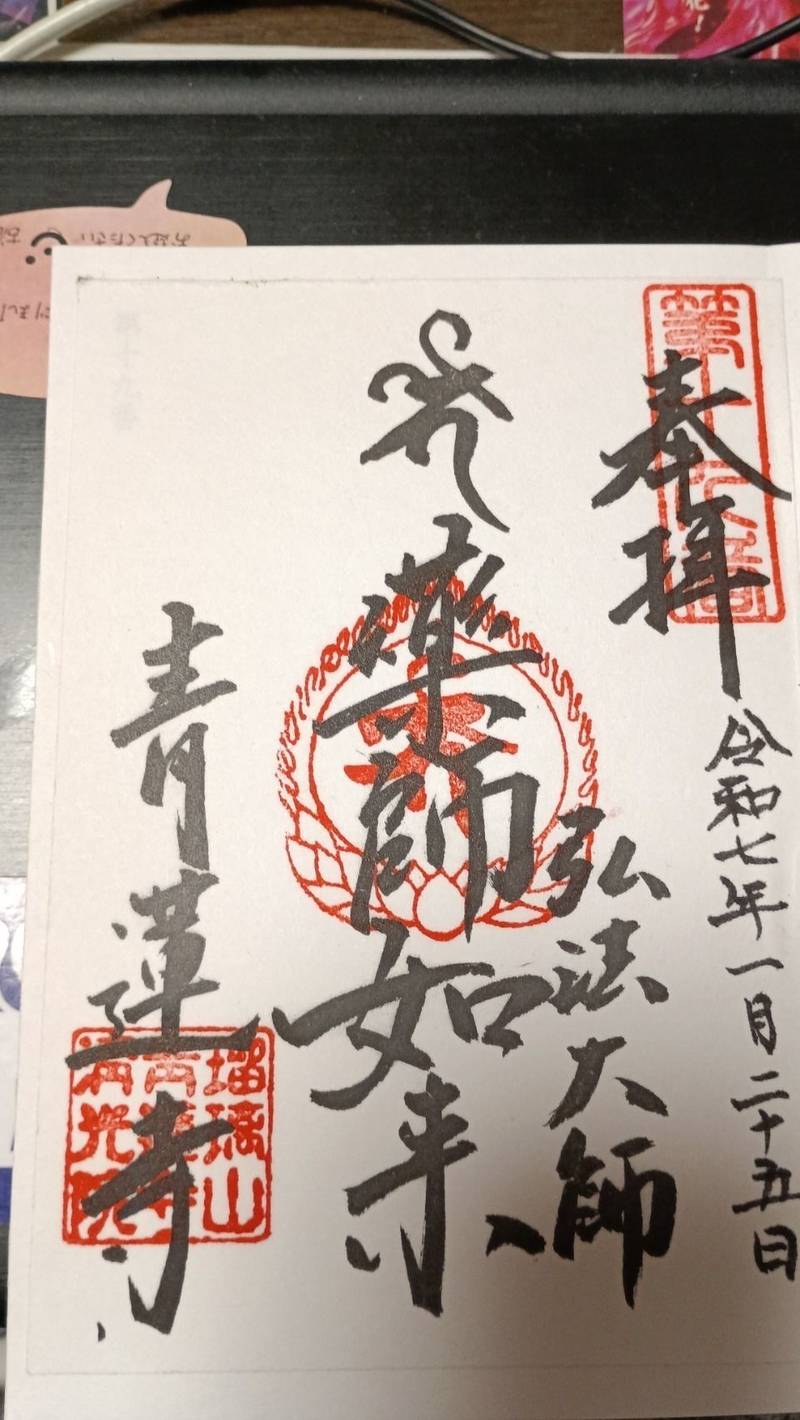 奉拝
令和七年一月二十五日
弘法大師
薬師如来
青蓮寺
瑠璃山
青蓮寺
有光院